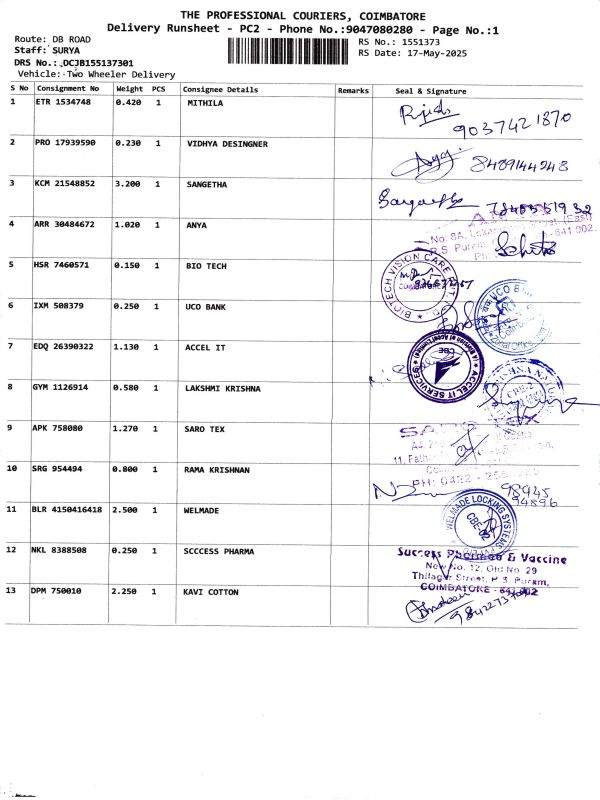 THE PROFESSIONAL COURIERS, COIMBATORE
Delivery Runsheet - PC2 - Phone No.:9047080280 - Page No.:1
Route: DB ROAD
RS No.: 1551373
Staff: SURYA
RS Date: 17-May-2025
DRS No.: DCJB155137301
Vehicle: Two Wheeler Delivery
S No Consignment No Weight PCS Consignee Details Remarks Seal & Signature
1 ETR 1534748 0.420 1 MITHILA
9037421870
2 PRO 17939590 0.230 1 VIDHYA DESINGNER
8489144248
3 KCM 21548852 3.200 1 SANGETHA
4 ARR 30484672 1.020 1 ANYA
5 HSR 7460571 0.150 1 BIO TECH
BIOTECH VISION CARE PVT.
6 IXM 508379 0.250 1 UCO BANK
UCO BANK
7 EDQ 26390322 1.130 1 ACCEL IT
ACCEL IT SERVICES
CBE
8 GYM 1126914 0.580 1 LAKSHMI KRISHNA
9 APK 758080 1.270 1 SARO TEX
10 SRG 954494 0.800 1 RAMA KRISHNAN
98945
94896
11 BLR 4150416418 2.500 1 WELMADE
WELMADE LOCKING SYSTEM
CBE-02
12 NKL 8388508 0.250 1 SCCCESS PHARMA
Success Pharma & Vaccine
New No. 12, Old No. 29
Thilagar Street, R.S. Puram,
COIMBATORE - 641 002
13 DPM 750010 2.250 1 KAVI COTTON